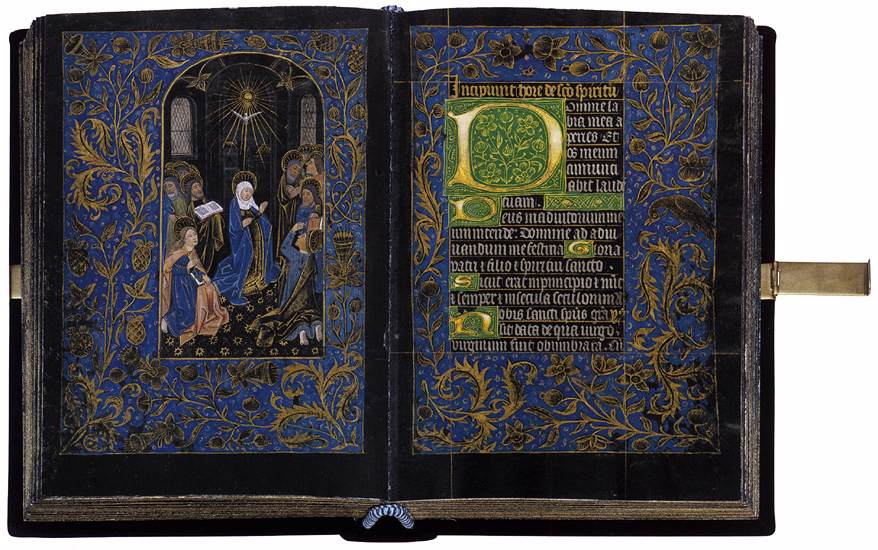 Incipiunt hore de sco spiritu
Domine la
bia mea a
peries Et
os meum
annunci
abit laudē
tuam.
Deus in adiutorium me
um intende: Domine ad adiu
uandum me festina Gloria
patri ⁊ filio ⁊ spiritui sancto.
Sicut erat in principio ⁊ nūc
⁊ semper ⁊ in secula seculorum
Nobis sancti spūs
sit data de qua virgo
virginum fuit obumbrata.